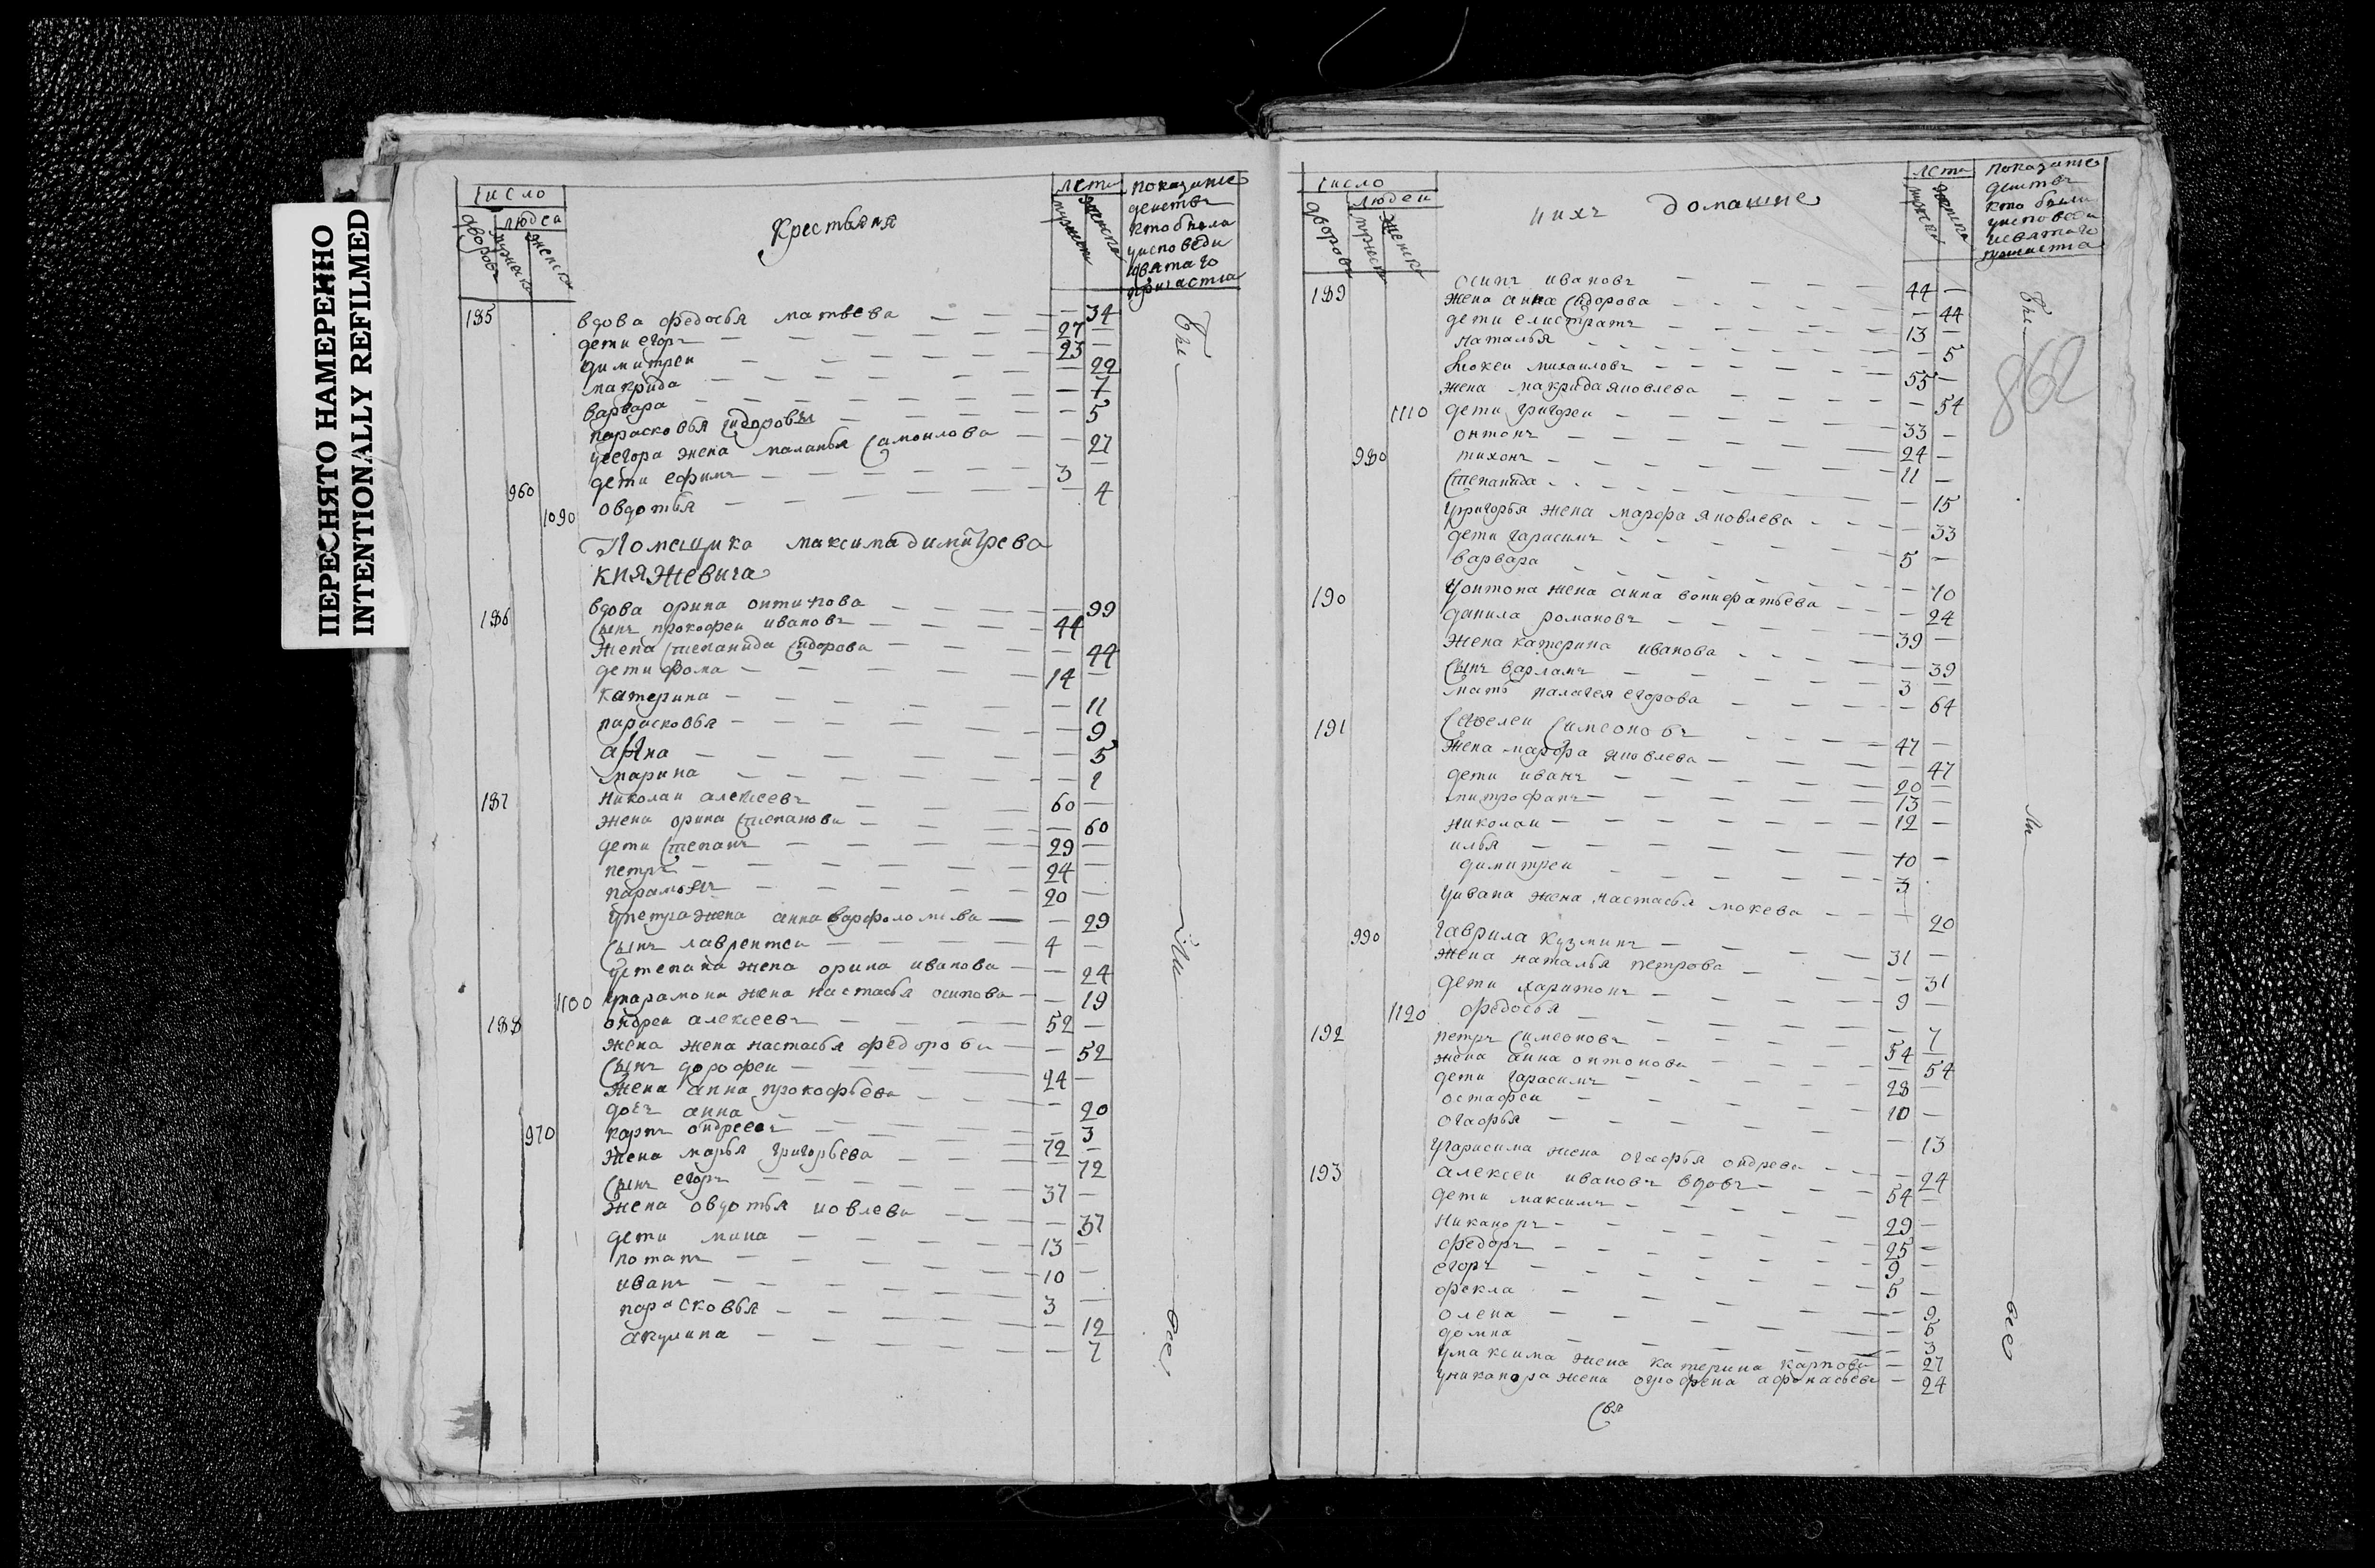 ПЕРЕСНЯТО НАМЕРЕННО
INTENTIONALLY REFILMED
число
людеи
дворовъ
мужеска
женска
Крестьяня
лета
мужеска
женска
показание
деиствъ
кто были
у исповеди
святаго
причастиа
185 вдова федосья матвеева — 34
дети егоръ 27 —
димитреи 23 —
макрида — 22
варвара — 7
парасковья сидоровы — 5
у егора жена маланья самоилова — 27
960 дети ефимъ 3 —
1090 овдотья — 4
Помещика максима димитрева
княжевича
186 вдова орина онтипова — 99
сынъ прокофеи ивановъ 44
жена степанида сидорова — 44
дети фома 14 —
катерина — 11
парасковья — 9
анна — 5
марина — 1
187 николаи алексеевъ 60 —
жена орина степанова — 60
дети степанъ 29 —
петръ 24 —
парамонъ 20 —
у петра жена анна варфоломева — 29
сынъ лаврентеи 4 —
у степана жена орина иванова — 24
1100 у парамона жена настасья осипова — 19
188 ондреи алексеевъ 52 —
жена жена настасья федорова — 52
сынъ дорофеи 24 —
жена анна прокофьева — 20
дочъ анна — 3
970 карпъ ондреевъ 72 —
жена марья григорьева — 72
сынъ егоръ 37 —
жена овдотья иовлева — 37
дети мина 13 —
потапъ 10 —
иванъ 3 —
парасковья — 12
акулина — 7
были
все
число
людеи
дворовъ
мужеска
женска
и ихъ домашние
лета
мужеска
женска
показание
деиствъ
кто были
у исповеди
и святаго
причастиа
862
189 осипъ ивановъ 44 —
жена анна сидорова — 44
дети елистратъ 13 —
наталья — 5
мокеи михаиловъ 55 —
1110 жена макрида яковлева — 54
дети григореи 33 —
онтонъ 24 —
980 тихонъ 11 —
степанида — 15
у григорья жена марфа яковлева — 33
дети гарасимъ 5 —
варвара — 10
у онтона жена анна вонифатьева — 24
190 данила романовъ 39 —
жена катерина иванова — 39
сынъ варламъ 3 —
мать палагея егорова — 64
191 савелеи симеоновъ 47 —
жена марфа яковлева — 47
дети иванъ 20 —
митрофанъ 13 —
николаи 12 —
илья 10 —
димитреи 3
у ивана жена настасья мокева — 20
990 гаврила кузминъ 31 —
жена наталья петрова — 31
дети харитонъ 9 —
1120 федосья — 7
192 петръ симеоновъ 54 —
жена анна онтонова — 54
дети гарасимъ 28 —
остафеи 10 —
огафья — 13
у гарасима жена огафья ондрева — 24
193 алексеи ивановъ вдовъ 54 —
дети максимъ 29 —
никаноръ 25 —
федоръ 9 —
егоръ 5 —
фекла — 9
олена — 6
домна — 3
у максима жена катерина карпова — 27
у никанора жена огрофена афонасьева — 24
свя
бы
ли
все